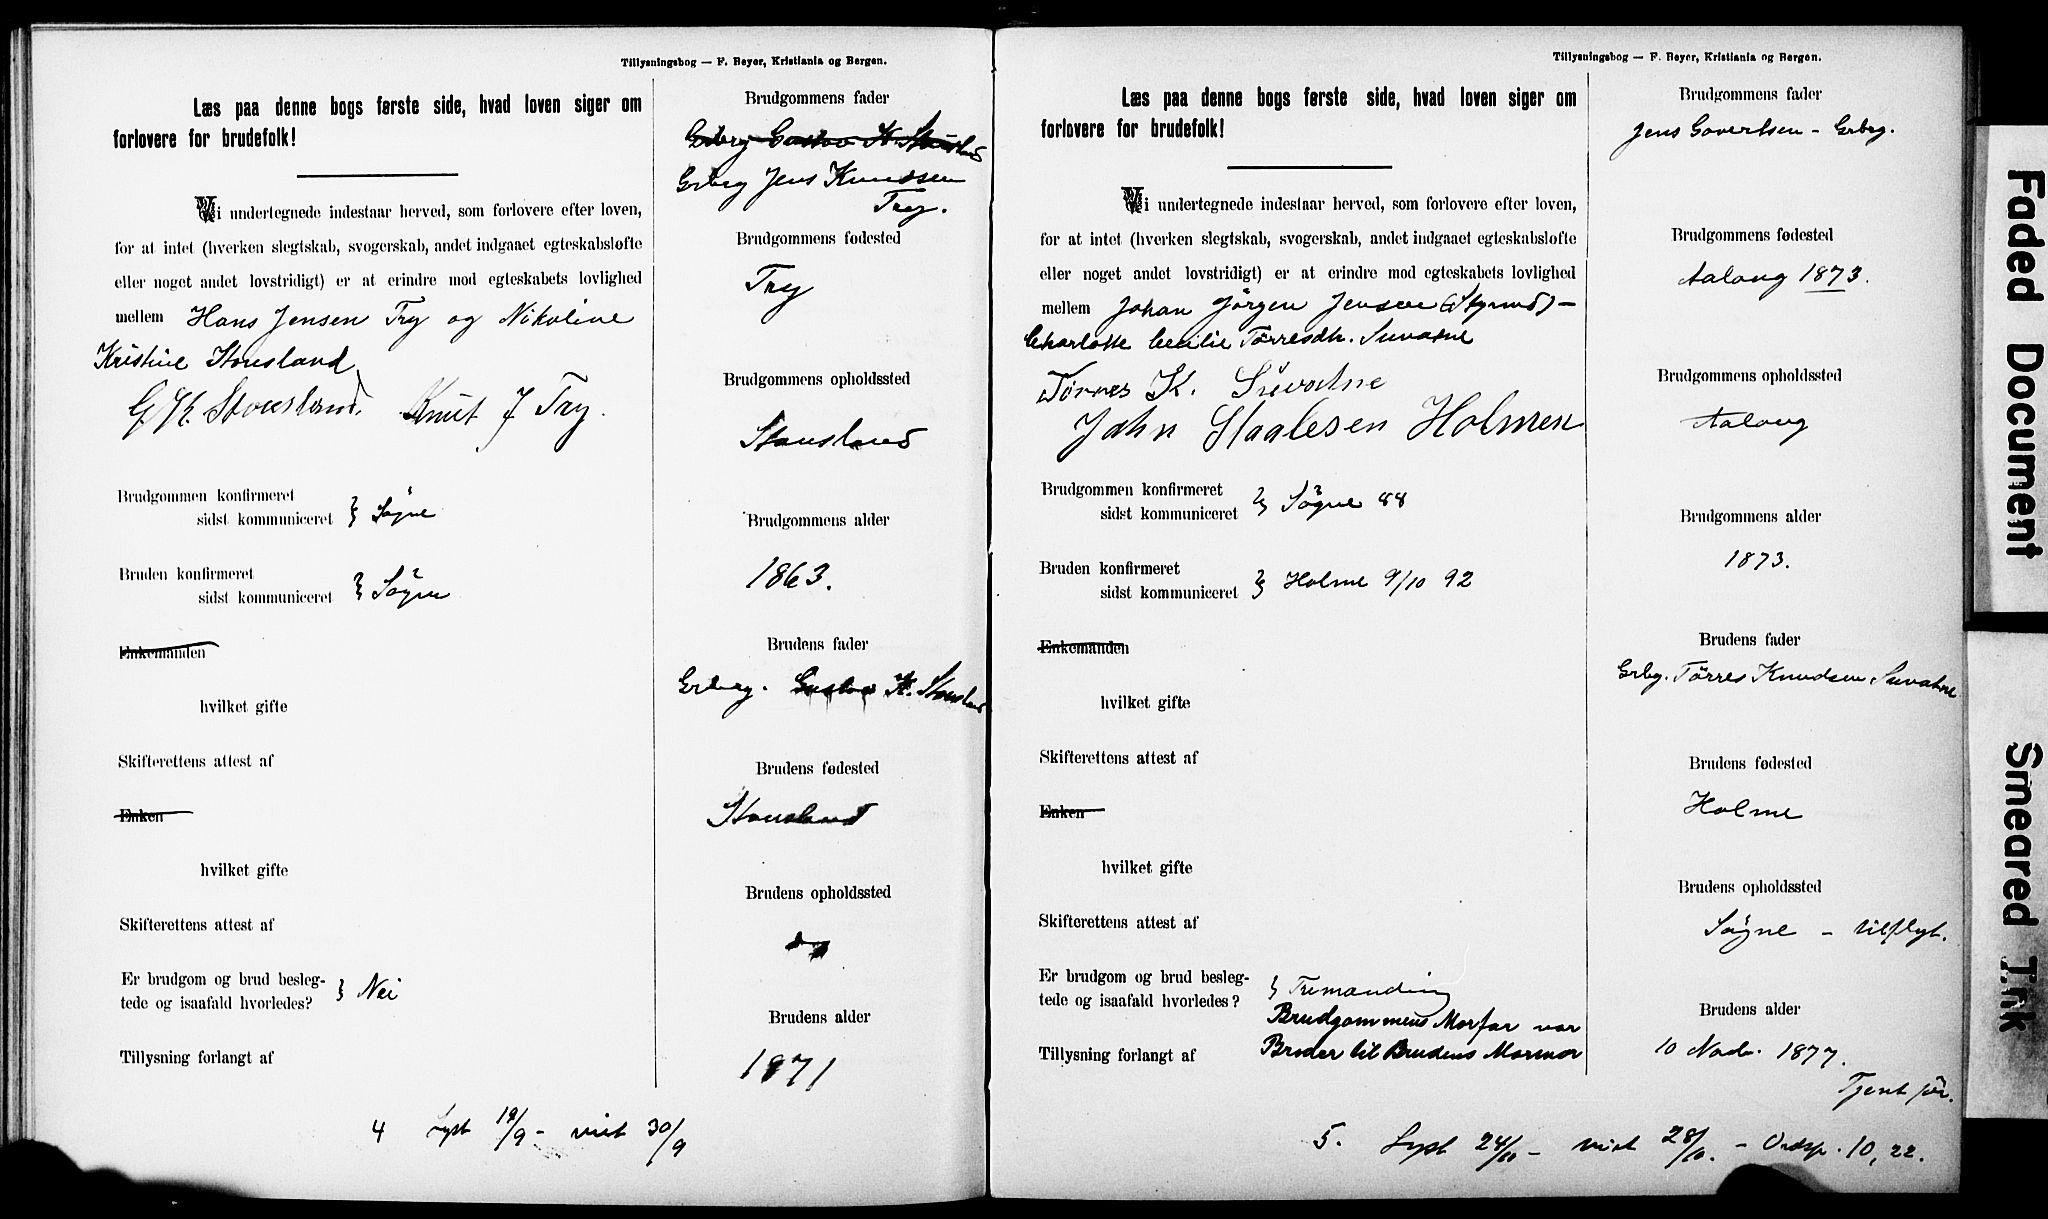 Tillysningsbog — F. Beyer, Kristiania og Bergen.
Læs paa denne bogs første side, hvad loven siger om
forlovere for brudefolk!
Vi undertegnede indestaar herved, som forlovere efter loven,
for at intet (hverken slegtskab, svogerskab, andet indgaaet egteskabsløfte
eller noget andet lovstridigt) er at erindre mod egteskabets lovlighed
mellem Hans Jensen Try og Nikoline
Kristine Stousland
G. K. Stousland. Knut J Try.
Brudgommen konfirmeret
sidst kommuniceret } Søgne
Bruden konfirmeret
sidst kommuniceret } Søgne
Enkemanden
hvilket gifte
Skifterettens attest af
Enken
hvilket gifte
Skifterettens attest af
Er brudgom og brud besleg-
tede og isaafald hvorledes? } Nei
Tillysning forlangt af
Brudgommens fader
Gbrbrg Gustav K. Stousland
Grbrg Jens Knudsen
Try.
Brudgommens fødested
Try
Brudgommens opholdssted
Stousland
Brudgommens alder
1863.
Brudens fader
Grbrg. Gustav K. Stousland
Brudens fødested
Stousland
Brudens opholdssted
do
Brudens alder
1871
4 Lyst 19/9 - viet 30/9
Tillysningsbog — F. Beyer, Kristiania og Bergen.
Læs paa denne bogs første side, hvad loven siger om
forlovere for brudefolk!
Vi undertegnede indestaar herved, som forlovere efter loven,
for at intet (hverken slegtskab, svogerskab, andet indgaaet egteskabsløfte
eller noget andet lovstridigt) er at erindre mod egteskabets lovlighed
mellem Johan Jørgen Jensen (Styrmd) -
Charlotte Cecilie Tørresdtr. Suvatne
Tørres K. Suvatne
John Staalesen Holmen
Brudgommen konfirmeret
sidst kommuniceret } Søgne 88
Bruden konfirmeret
sidst kommuniceret } Holme 9/10 92
Enkemanden
hvilket gifte
Skifterettens attest af
Enken
hvilket gifte
Skifterettens attest af
Er brudgom og brud besleg-
tede og isaafald hvorledes? } Tremanding
Brudgommens Morfar var
Tillysning forlangt af Broder til Brudens Mormor
Brudgommens fader
Jens Govertsen - Grbrg.
Brudgommens fødested
Aalong 1873.
Brudgommens opholdssted
Aalong
Brudgommens alder
1873.
Brudens fader
Grbg. Tørres Knudsen Suvatne
Brudens fødested
Holme
Brudens opholdssted
Søgne - tilflyt.
Brudens alder
10 Novbr. 1877.
Tjent før.
5. Lyst 24/10 - viet 28/10. - Ordsp. 10, 22.
Faded Document
Smeared Ink